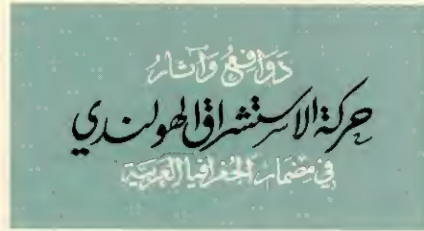 دَوَافِعُ وَآثَارُ
حركة الاستشراق الهولندي
في مضمار الجغرافيا العربية